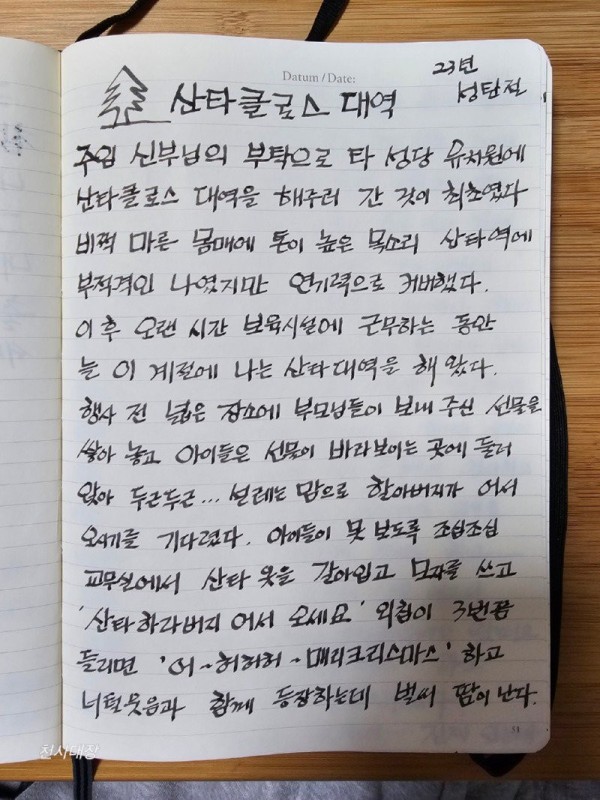 Datum / Date:
23년
성탄전
산타클로스 대역
주임 신부님의 부탁으로 타 성당 유치원에
산타클로스 대역을 해주러 간 것이 최초였다
비쩍 마른 몸매에 톤이 높은 목소리 산타역에
부적격인 나였지만 연기력으로 커버했다.
이후 오랜 시간 보육시설에 근무하는 동안
늘 이 계절에 나는 산타대역을 해 왔다.
행사 전 넓은 장소에 부모님들이 보내 주신 선물을
쌓아 놓고 아이들은 선물이 바라보이는 곳에 둘러
앉아 두근두근... 설레는 맘으로 할아버지가 어서
오시기를 기다렸다. 아이들이 못 보도록 조심조심
교무실에서 산타 옷을 갈아입고 모자를 쓰고
'산타하라버지 어서 오세요' 외침이 3번쯤
들리면 '어~허허허~매리크리스마스' 하고
너털웃음과 함께 등장하는데 벌써 땀이 난다.
51
천사대장